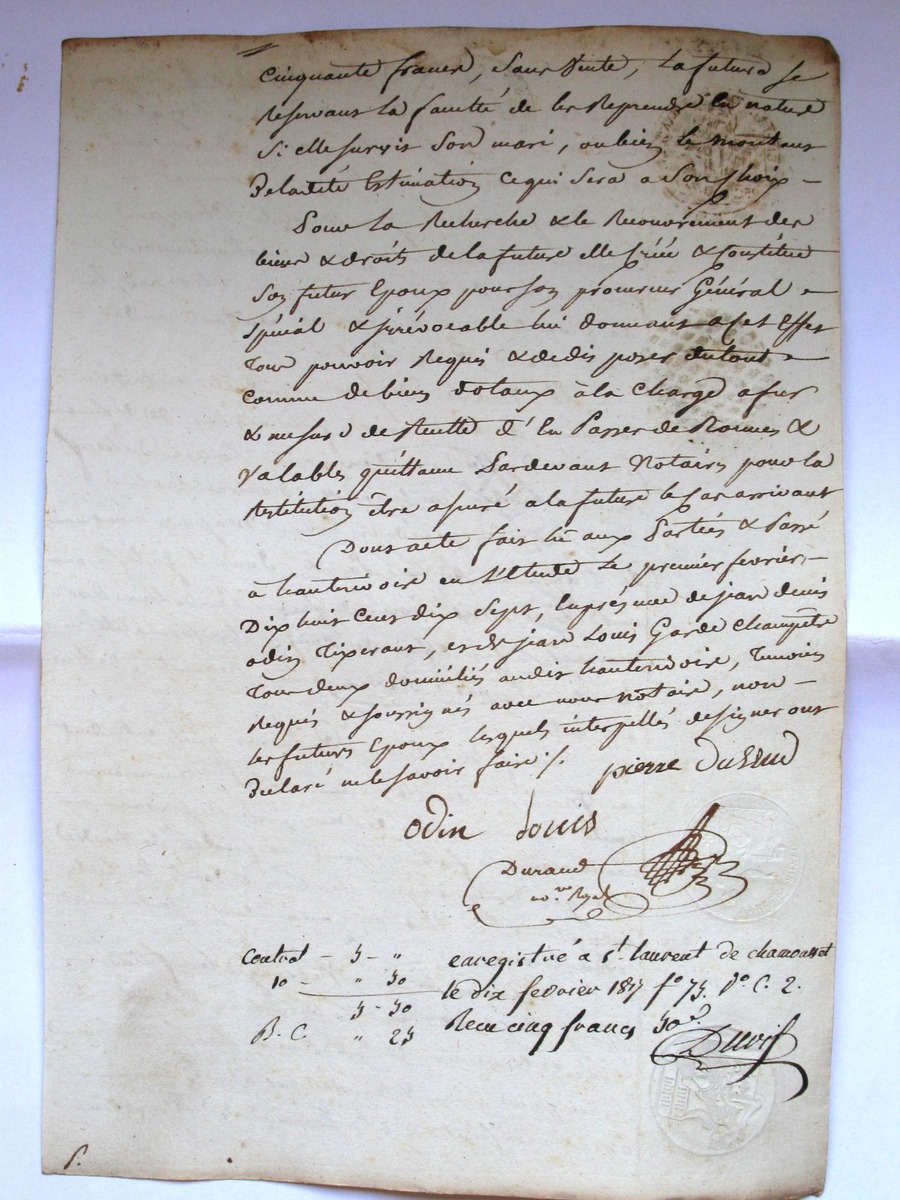 Cinquante francs, Sans Vente, La future se
Reservant la faculté de les Reprendre en nature
Si elle survit son mari, ou bien le montant
De ladite Estimation ce qui sera a Son Choix -
Pour la Recherche & le Recouvrement des
biens & droits de la future elle Créé & Constitue
Son futur Epoux pour son procureur Général
Spécial & irrévocable lui donnant a Cet Effet
Tout pouvoir Requis & de disposer du tout
Comme de biens dotaux à la Charge a fur
& mesure de Recette d'En Passer de Bonnes &
Valables quittance Pardevant Notaires pour la
Restitution être assuré a la future le Cas arrivant
Dont acte fait lu aux Parties & Passé
a hauterivoire en L'étude Le premier fevrier
Dix huit Cent dix Sept, En présence de jean denis
odin Tixerant, et de jean Louis Garde Champêtre
Tous deux domiciliés audit hauterivoire, Temoins
Requis & soussignés avec nous Notaire, non
les futurs Epoux lesquels interpellés de signer ont
Declaré ne le savoir faire /.
pierre
odin Louis
Durand
no.re Royal
Control - 5 - "
10 - " 50
5 - 50
B. C. " 25
enregistré à St. laurent de chamousset
le dix fevrier 1817 fo 75. Vo C. 2.
Recu cinq francs 50c